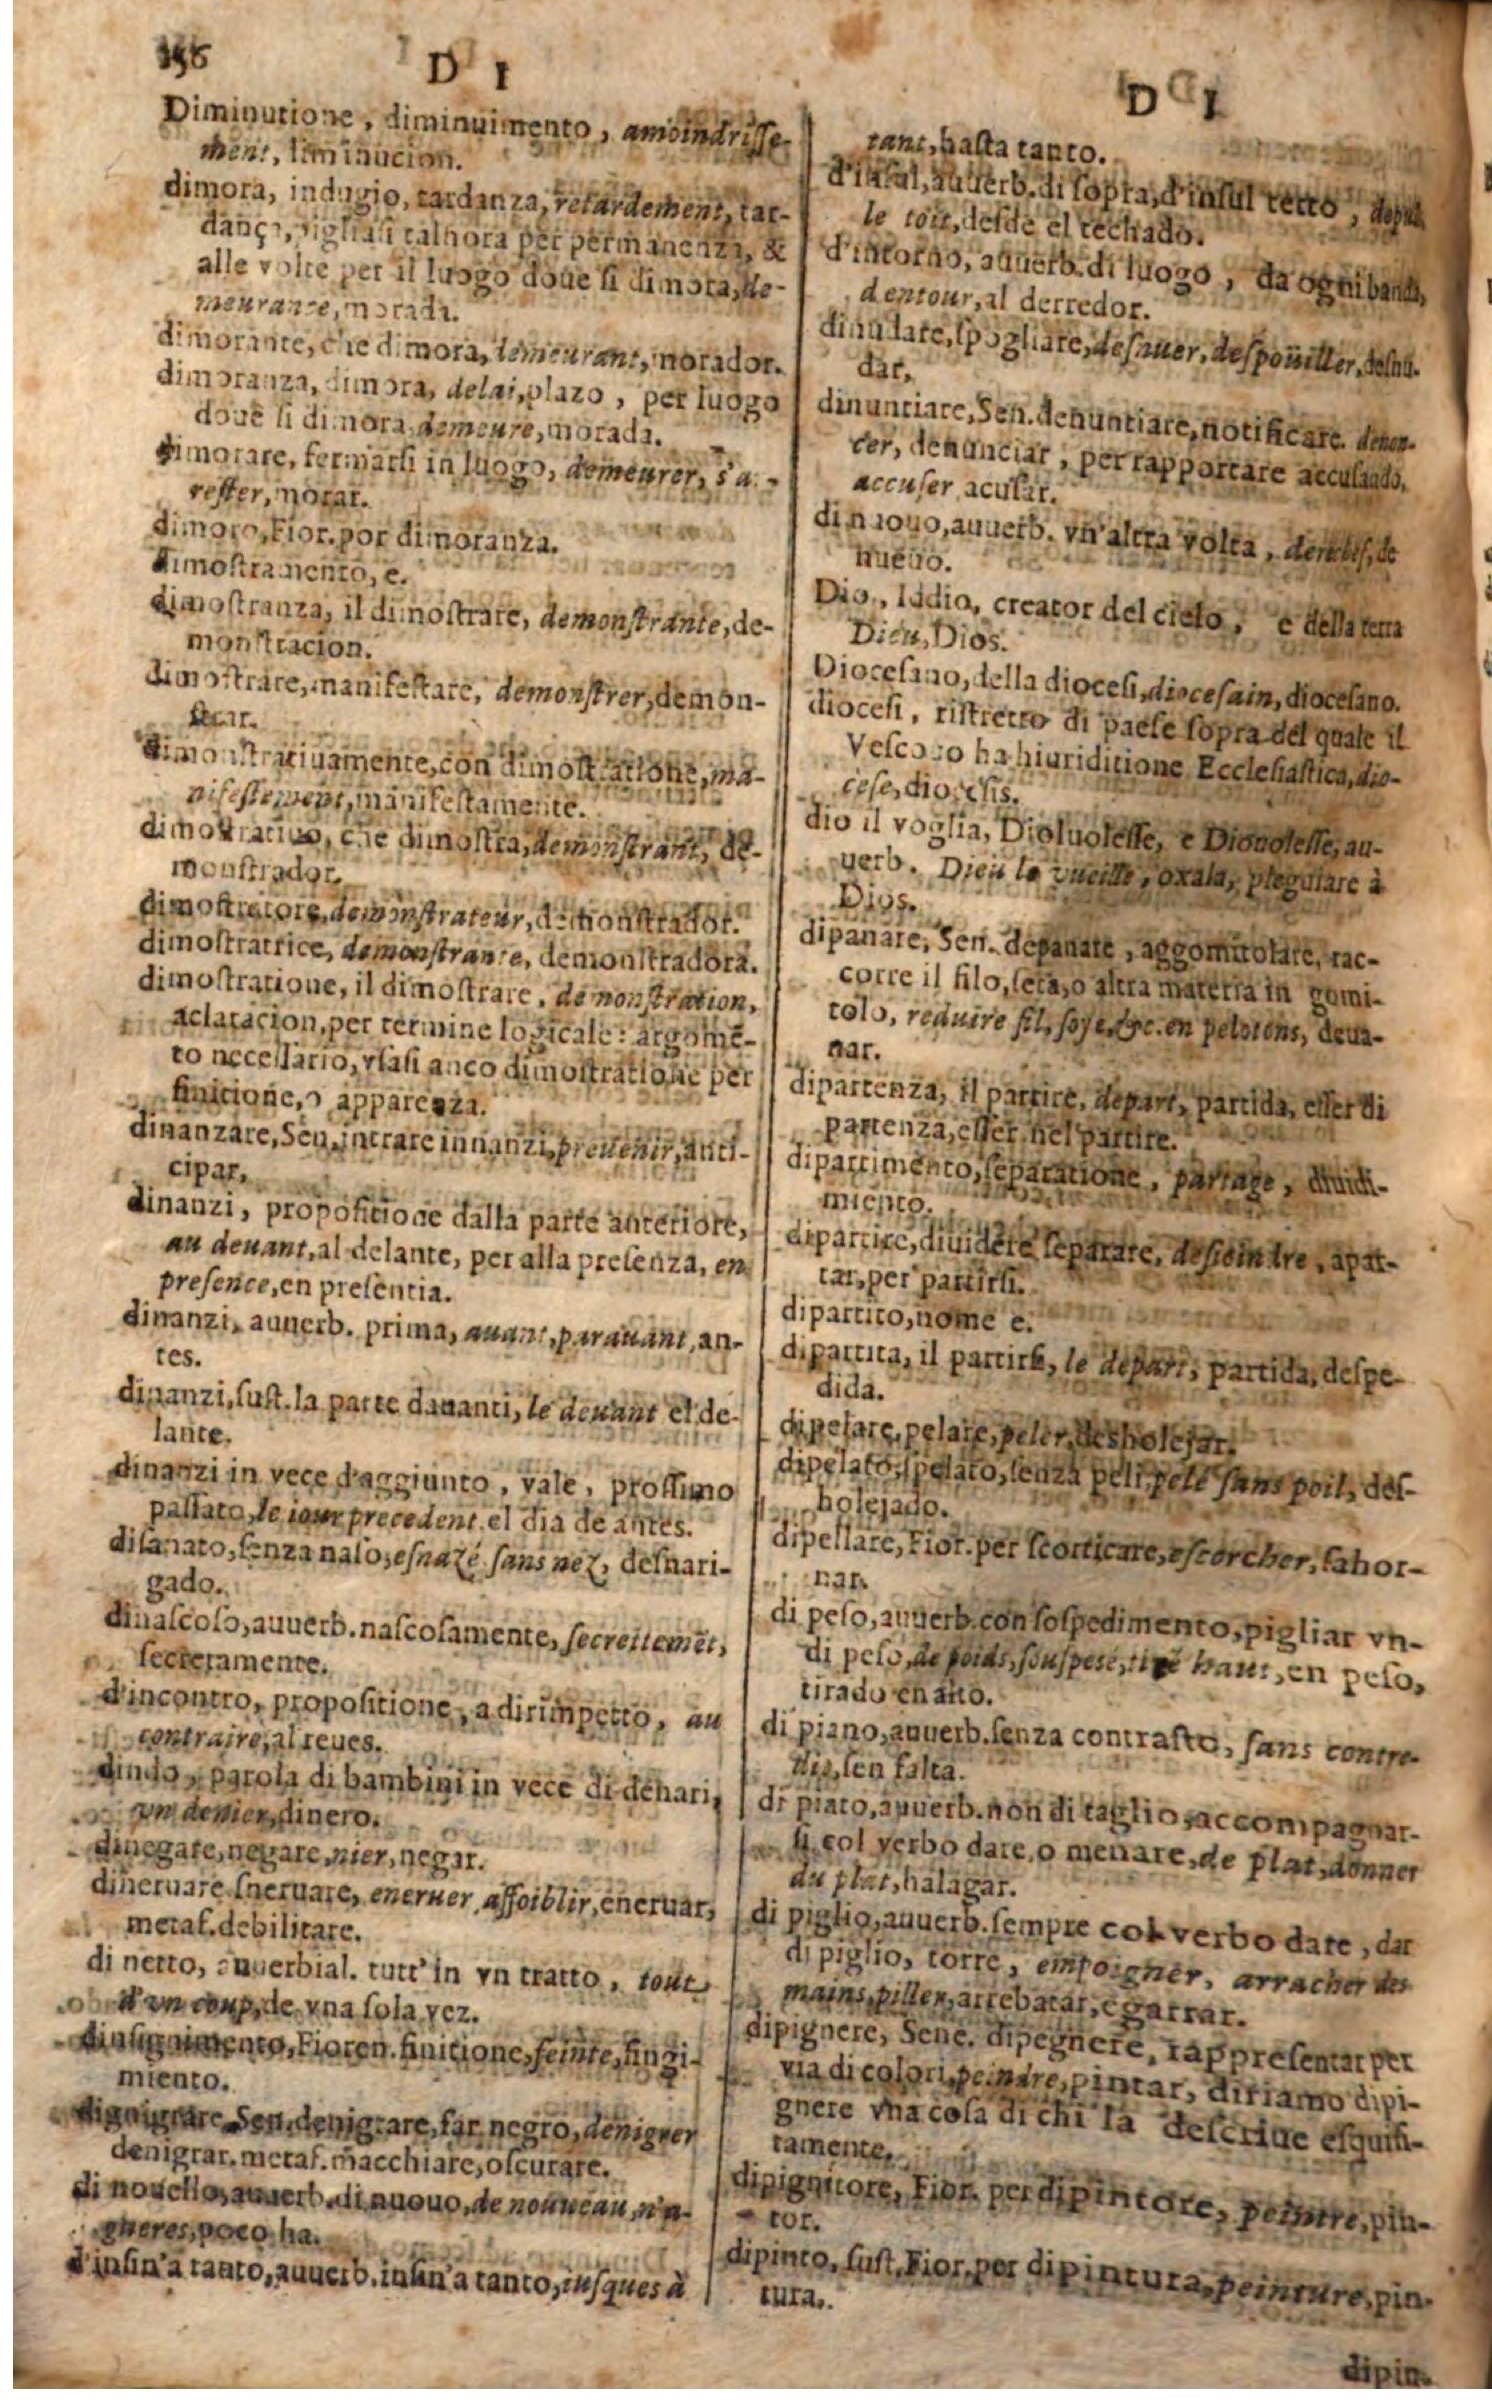 156
D I
Diminutione, diminuimento, amoindrisse-
ment, diminucion.
dimora, indugio, tardanza, retardement, tar-
dança, pigliasi talhora per permanenza, &
alle volte per il luogo doue si dimora, de-
meurance, morada.
dimorante, che dimora, demeurant, morador.
dimoranza, dimora, delai, plazo, per luogo
doue si dimora, demeure, morada.
dimorare, fermarsi in luogo, demeurer, s'a-
rester, morar.
dimoro, Fior. por dimoranza.
dimostramento, e.
dimostranza, il dimostrare, demonstrante, de-
monstracion.
dimostrare, manifestare, demonstrer, demon-
strar.
dimonstratiuamente, con dimostratione, ma-
nifestement, manifestamente.
dimostratiuo, che dimostra, demonstrant, de-
monstrador.
dimostratore, demonstrateur, demonstrador.
dimostratrice, demonstrante, demonstradora.
dimostratione, il dimostrare, demonstration,
aclaracion, per termine logicale: argomē-
to necessario, vsasi anco dimostratione per
finitione, o apparenza.
dinanzare, Sen. intrare innanzi, preuenir, anti-
cipar,
dinanzi, propositione dalla parte anteriore,
au deuant, al delante, per alla presenza, en
presence, en presentia.
dinanzi, auuerb. prima, auant, parauant, an-
tes.
dinanzi, sust. la parte dauanti, le deuant el de-
lante.
dinanzi in vece d'aggiunto, vale, prossimo
passato, le iour precedent, el dia de antes.
disanato, senza naso, esnazé sans nez, desnari-
gado.
dinascoso, auuerb. nascosamente, secrettemēt,
secretamente.
d'incontro, propositione, a dirimpetto, au
contraire, al reues.
dindo, parola di bambini in vece di denari,
vn denier, dinero.
dinegare, negare, nier, negar.
dineruare sneruare, eneruer, affoiblir, eneruar,
metaf. debilitare.
di netto, auuerbial. tutt' in vn tratto, tout
d'vn coup, de vna sola vez.
dinsignimento, Fioren. finitione, feinte, fingi-
miento.
dignigrare, Sen. denigrare, far negro, denigrer
denigrar. metaf. macchiare, oscurare.
di nouello, auuerb. di nuouo, de nouueau, n'a-
gueres, poco ha.
d'insin'a tanto, auuerb. insin'a tanto, iusques à
D I
tant, hasta tanto.
d'insul, auuerb. di sopra, d'insul tetto, depuis
le toit, desde el techado.
d'intorno, auuerb. di luogo, da ogni banda,
d'entour, al derredor.
dinudare, spogliare, desnuer, despoüiller, desnu-
dar,
dinuntiare, Sen. denuntiare, notificare. denon-
cer, denunciar, per rapportare accusando,
accuser, acusar.
di nuouo, auuerb. vn'altra volta, derechef, de
nueuo.
Dio, Iddio, creator del cielo, e della terra
Dieu, Dios.
Diocesano, della diocesi, diocesain, diocesano.
diocesi, ristretto di paese sopra del quale il
Vescouo ha hiuriditione Ecclesiastica, dio-
cese, diocesis.
dio il voglia, Dioluolesse, e Diouolesse, au-
uerb. Dieu le vueille, oxala, pleguiare à
Dios.
dipanare, Sen. depanare, aggomitolare, rac-
corre il filo, seta, o altra materia in gomi-
tolo, reduire fil, soye, &c. en pelotons, deua-
nar.
dipartenza, il partire, depart, partida, esser di
partenza, esser nel partire.
dipartimento, separatione, partage, diuidi-
miento.
dipartire, diuidere separare, desioindre, apar-
tar, per partirsi.
dipartito, nome e.
dipartita, il partirsi, le depart, partida, despe-
dida.
dipelare, pelare, peler, desholejar.
dipelato, spelato, senza peli, pelé sans poil, des-
holejado.
dipellare, Fior. per scorticare, escorcher, sahor-
nar.
di peso, auuerb. con sospedimento, pigliar vn-
di peso, de poids, souspesé, tiré haut, en peso,
tirado en alto.
di piano, auuerb. senza contrasto, sans contre-
dit, sen falta.
di piato, auuerb. non di taglio, accompagnar-
si col verbo dare, o menare, de plat, donner
du plat, halagar.
di piglio, auuerb. sempre col verbo dare, dar
di piglio, torre, empoigner, arracher des
mains, piller, arrebatar, egarrar.
dipignere, Sene. dipegnere, rappresentar per
via di colori, peindre, pintar, diriamo dipi-
gnere vna cosa di chi la descriue esquisi-
tamente.
dipignitore, Fior. per dipintore, peintre, pin-
tor.
dipinto, sust. Fior. per dipintura, peinture, pin-
tura.
dipin-